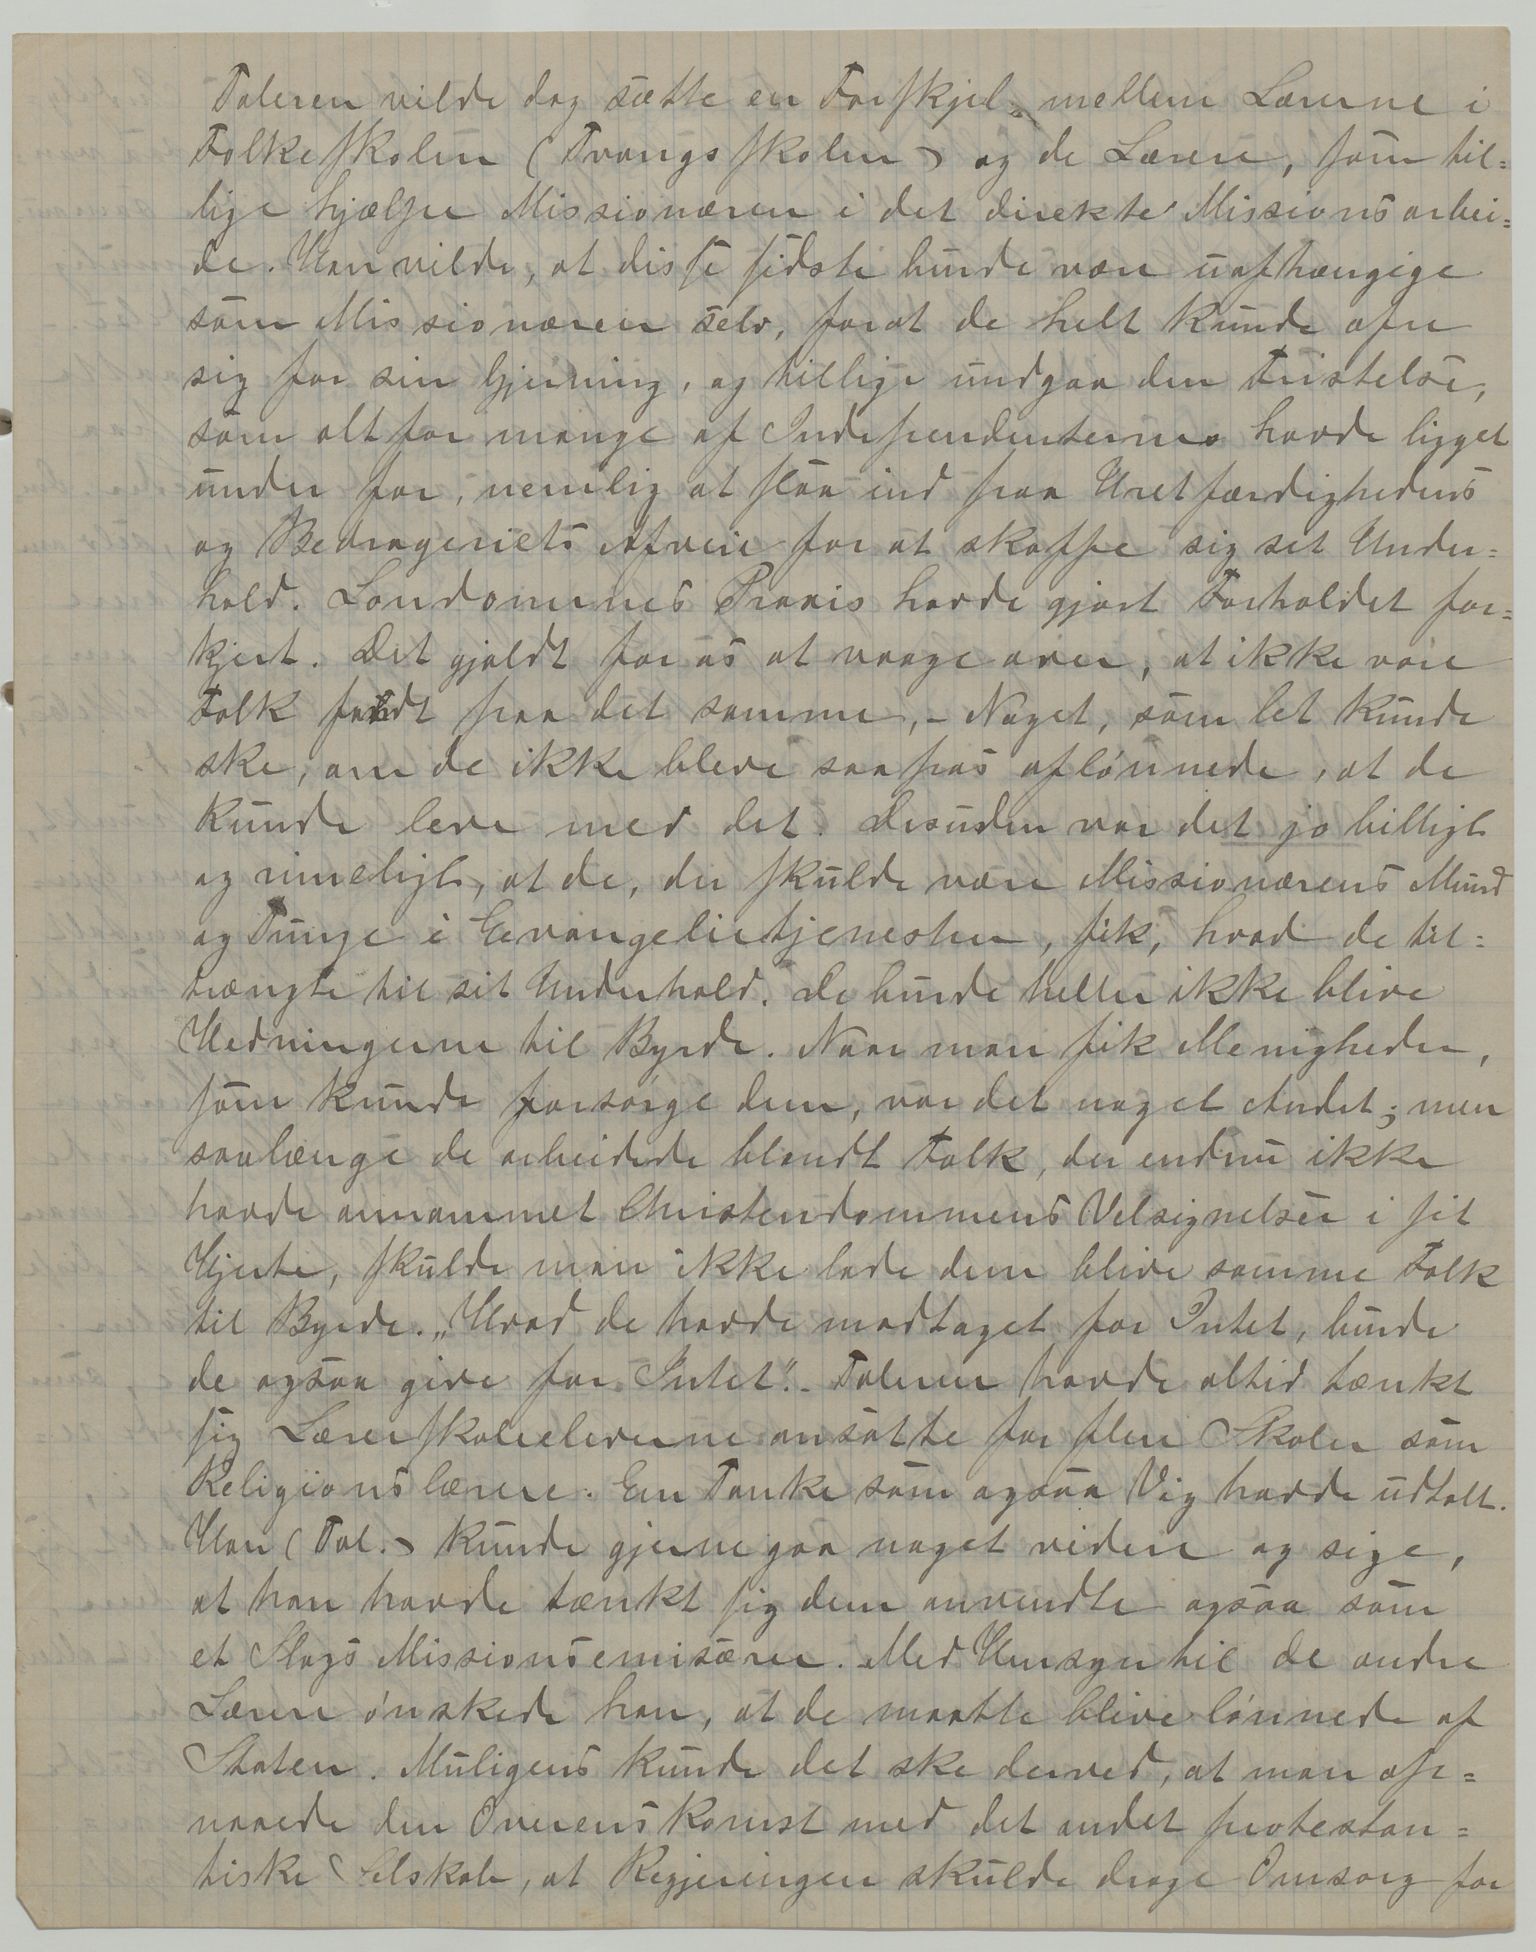 Taleren vilde dog sætte en Forskjel mellem Lærerne i
Folkeskolen (Tvangsskolen) og de Lærere, som til=
lige hjælpe Missionæren i det direkte Missionsarbei=
de. Han vilde, at disse sidste burde være uafhængige
som Missionæren selv, forat de helt kunde ofre
sig for sin Gjerning, og tillige undgaa den Fristelse,
som alt for mange af Independenterne havde ligget
under for, nemlig at slaa ind paa Uretfærdighedens
og Bedrageriets Afveie for at skaffe sig sit Under=
hold. Londonernes Praxis havde gjort Forholdet for=
kjert. Det gjaldt for os at vaage over, at ikke vore
Folk faldt paa det samme, - Noget, som let kunde
ske, om de ikke bleve saapas aflønnede, at de
kunde leve med det. Desuden var det jo billigt
og rimeligt, at de, der skulde være Missionærens Mund
og Tunge i Evangelietjenesten, fik, hvad de til=
trængte til sit Underhold. De burde heller ikke blive
Hedningerne til Byrde. Naar man fik Menigheder,
som kunde forsørge dem, var det noget Andet; men
saalænge de arbeidede blandt Folk, der endnu ikke
havde annammet Christendommens Velsignelser i sit
Hjerte, skulde man ikke lade dem blive samme Folk
til Byrde. „Hvad de havde modtaget for Intet, burde
de ogsaa give for Intet". - Taleren havde altid tænkt
sig Lærerskoleeleverne ansatte for flere Skoler som
Religionslærere. En Tanke som ogsaa Vig havde udtalt.
Han (Tal.) kunde gjerne gaa noget videre og sige,
at han havde tænkt sig dem anvendte ogsaa som
et Slags Missionsemisærer. Med Hensyn til de andre
Lærere ønskede han, at de maatte blive lønnede af
Staten. Muligens kunde det ske derved, at man op=
naaede den Overenskomst med det andet protestan=
tiske Selskab, at Regjeringen skulde drage Omsorg for